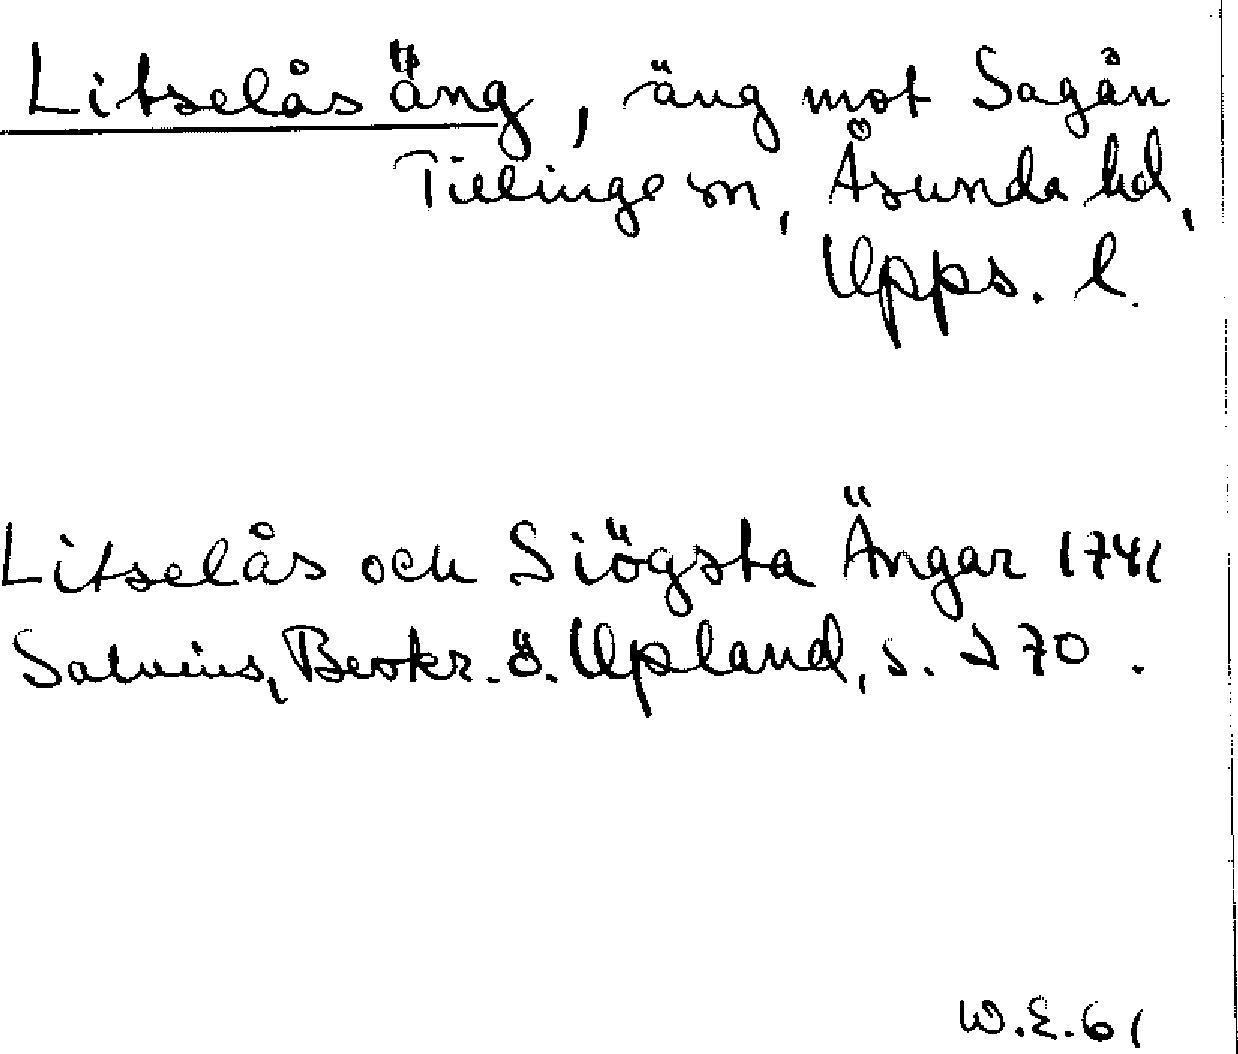 Litselås äng, äng mot Sagån
Tillinge sn, Åsunda hd,
Upps. l.
Litselås och Siögsta Ängar 1741
Salvius, Beskr. ö. Upland, s. 270.
W.E.61